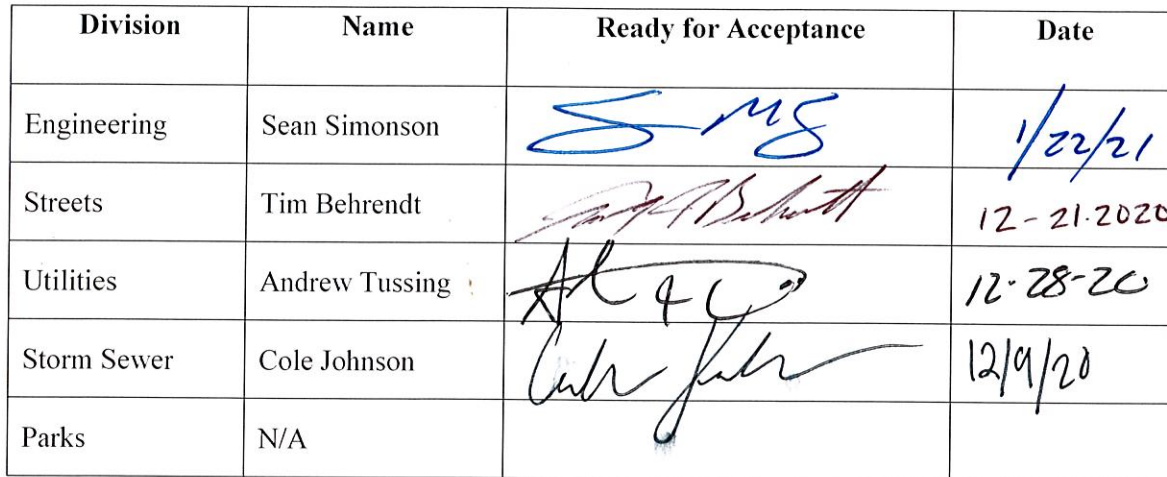 Division Name Ready for Acceptance Date
Engineering Sean Simonson 1/22/21
Streets Tim Behrendt 12-21-2020
Utilities Andrew Tussing 12-28-20
Storm Sewer Cole Johnson 12/9/20
Parks N/A